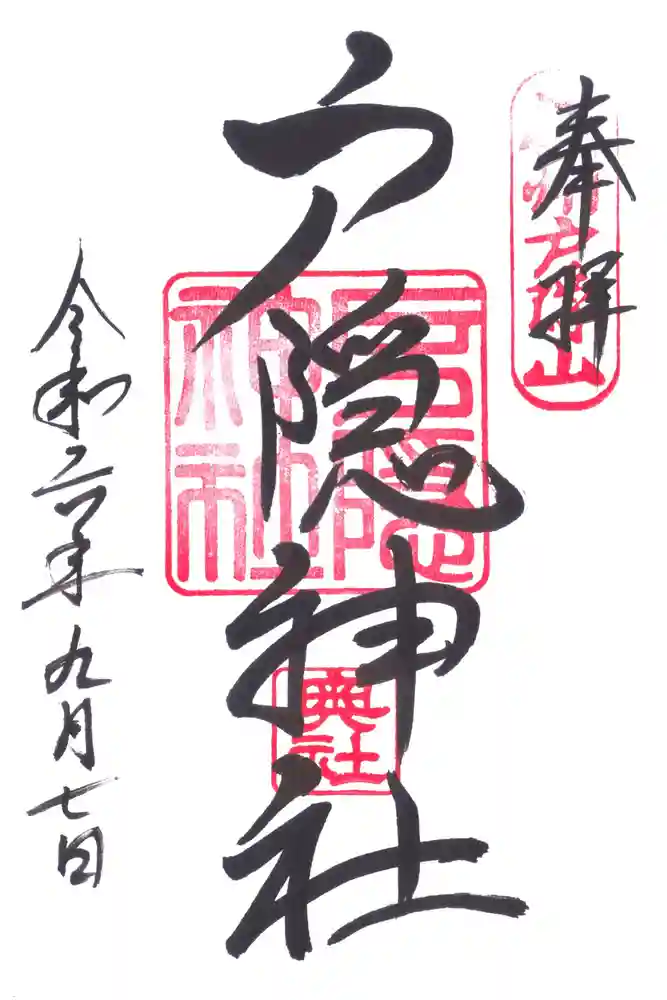 奉拝
信州戸隠山
戸隠神社
戸隠神社
奥社
令和六年九月七日